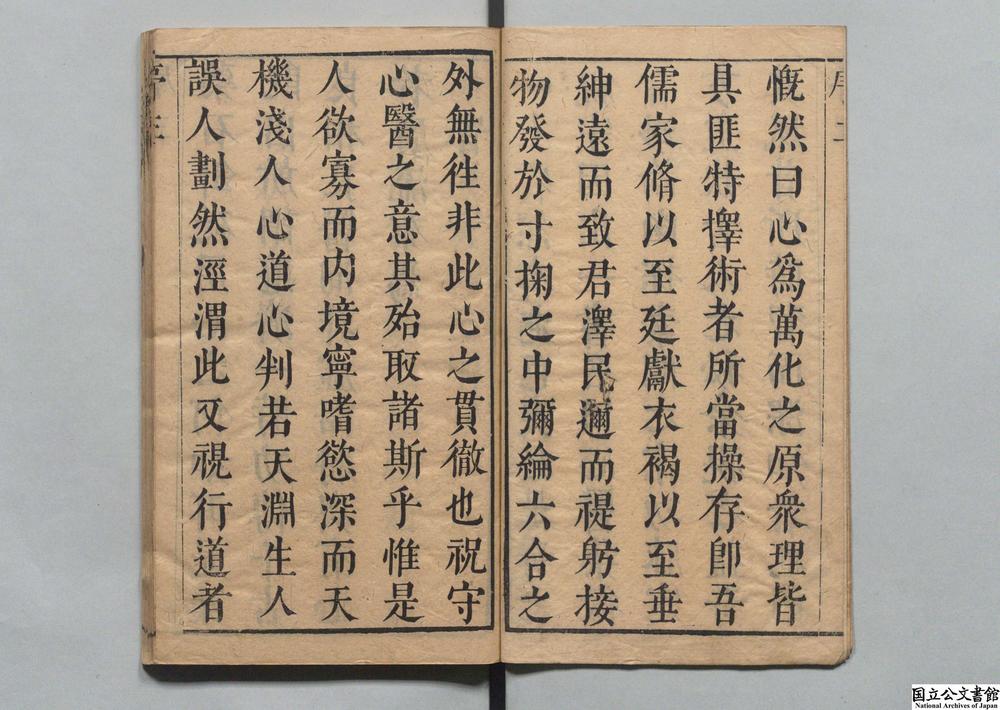 慨然曰心爲萬化之原衆理皆
具匪特擇術者所當操存卽吾
儒家脩以至廷獻衣褐以至垂
紳遠而致君澤民邇而禔躬接
物發於寸掬之中彌綸六合之
外無徃非此心之貫徹也祝守
心醫之意其殆取諸斯乎惟是
人欲寡而内境寧嗜慾深而天
機淺人心道心判若天淵生人
誤人劃然涇渭此又視行道者
国立公文書館
National Archives of Japan